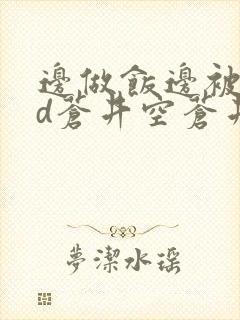 邊做飯邊被
d蒼井空蒼井
夢潔水瑶